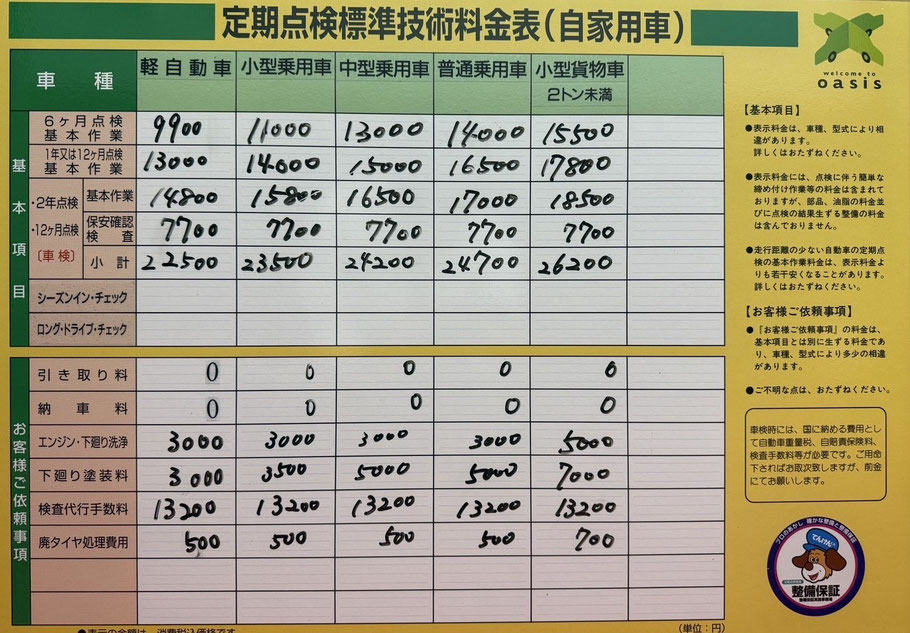 定期点検標準技術料金表(自家用車)
welcome to
oasis
車種 軽自動車 小型乗用車 中型乗用車 普通乗用車 小型貨物車
2トン未満
基本項目
6ヶ月点検
基本作業 9900 11000 13000 14000 15500
1年又は12ヶ月点検
基本作業 13000 14000 15000 16500 17800
・2年点検
・12ヶ月点検
〔車検〕
基本作業 14800 15800 16500 17000 18500
保安確認
検査 7700 7700 7700 7700 7700
小計 22500 23500 24200 24700 26200
シーズンイン・チェック
ロング・ドライブ・チェック
お客様ご依頼事項
引き取り料 0 0 0 0 0
納車料 0 0 0 0 0
エンジン・下廻り洗浄 3000 3000 3000 3000 5000
下廻り塗装料 3000 3500 5000 5000 7000
検査代行手数料 13200 13200 13200 13200 13200
廃タイヤ処理費用 500 500 500 500 700
(単位:円)
【基本項目】
●表示料金は、車種、型式により相
違があります。
詳しくはおたずねください。
●表示料金には、点検に伴う簡単な
締め付け作業等の料金は含まれて
おりますが、部品、油脂の料金並
びに点検の結果生ずる整備の料金
は含んでおりません。
●走行距離の少ない自動車の定期点
検の基本作業料金は、表示料金よ
りも若干安くなることがあります。
詳しくはおたずねください。
【お客様ご依頼事項】
●『お客様ご依頼事項』の料金は、
基本項目とは別に生ずる料金であ
り、車種、型式により多少の相違
があります。
●ご不明な点は、おたずねください。
車検時には、国に納める費用とし
て自動車重量税、自賠責保険料、
検査手数料等が必要です。ご用命
下さればお取次致しますが、前金
にてお願いします。
プロのあかし 確かな整備と整備保証
てんけんくん
整備保証